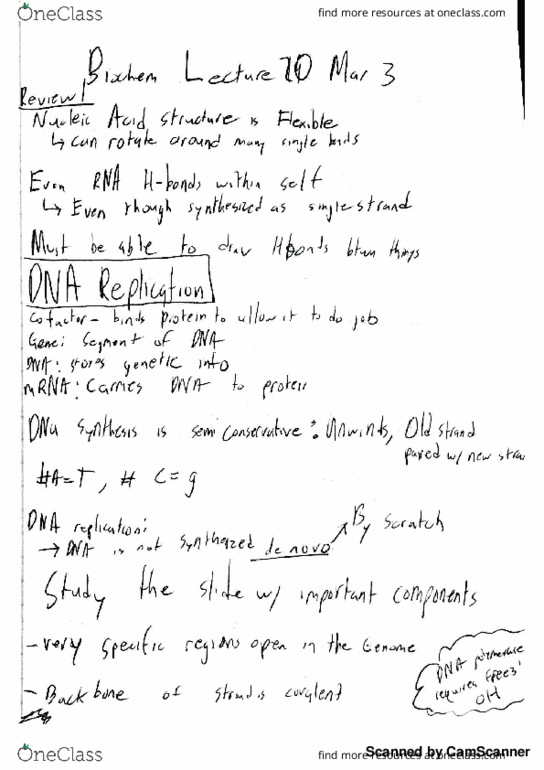 OneClass
find more resources at oneclass.com
Biochem Lecture 10 Mar 3
Review!
Nucleic Acid structure is Flexible
↳ can rotate around many single bonds
Even RNA H-bonds within self
↳ Even though synthesized as single strand
Must be able to draw Hbonds btwn things
DNA Replication
Cofactor - binds protein to allow it to do job
Gene: Segment of DNA
DNA: stores genetic info
mRNA: Carries DNA to protein
DNA synthesis is semiconservative: Unwinds, Old strand
paired w/ new stran
#A=T, # C=g
DNA replication:
→ DNA is not synthesized de novo
By Scratch
Study the slide w/ important components
- very specific regions open in the Genome
- Backbone of strand is covalent
DNA polymerase
requires free 3'
OH
OneClass
find more resources at oneclass.com
Scanned by CamScanner